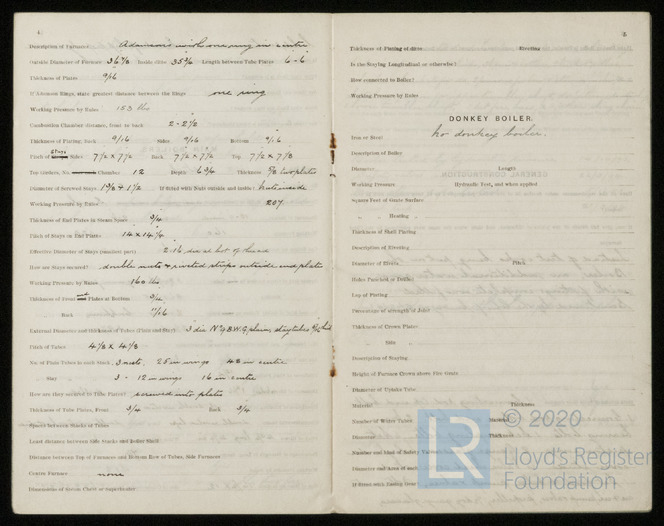 4
Description of Furnace Adamsons with one ring in centre
Outside Diameter of Furnace 36 7/8 Inside ditto 35 3/4 Length between Tube Plates 6-6
Thickness of Plates 9/16
If Adamson Rings, state greatest distance between the Rings one ring
Working Pressure by Rules 153 lbs
Combustion Chamber distance, front to back 2-2 1/2
Thickness of Plating, Back 9/16 Sides 9/16 Bottom 9/16
Pitch of Stays Sides 7 1/2 x 7 1/2 Back 7 1/2 x 7 1/2 Top 7 1/2 x 7 1/8
Top Girders, No. Chamber 12 Depth 6 3/4 Thickness 5/8 two plates
Diameter of Screwed Stays If fitted with Nuts outside and inside: nuts inside
Working Pressure by Rules 207
Thickness of End Plates in Steam Space 3/4
Pitch of Stays in End Plates 14 x 14 1/4
Effective Diameter of Stays (smallest part) 2.16 dia at bot of thread
How are Stays secured? double nuts & riveted strips outside end plates
Working Pressure by Rules 160 lbs
Thickness of Front end Plates at Bottom 3/4
Back 11/16
External Diameter and thickness of Tubes (Plain and Stay) 3 dia No 9 B.W.G. plain, stay tubes 5/16 thick
Pitch of Tubes 4 1/8 x 4 1/8
No. of Plain Tubes in each Stack 3 nests, 25 in wings 48 in centre
Stay 3 - 12 in wings 16 in centre
How are they secured to Tube Plates? screwed into plates
Thickness of Tube Plates, Front 3/4 Back 3/4
Spaces between Stacks of Tubes
Least distance between Side Stacks and Boiler Shell
Distance between Top of Furnaces and Bottom Row of Tubes, Side Furnaces
Centre Furnace none
Dimensions of Steam Chest or superheater
5
Thickness of Plating of ditto Riveting
Is the Staying Longitudinal or otherwise?
How connected to Boiler?
Working Pressure by Rules
DONKEY BOILER.
Iron or Steel No donkey boiler.
Description of Boiler
Diameter Length
Working Pressure Hydraulic Test, and when applied
Square Feet of Grate Surface
" Heating "
Thickness of Shell Plating
Description of Riveting
Diameter of Rivets Pitch
Holes Punched or Drilled
Lap of Plating
Percentage of strength of Joint
Thickness of Crown Plates
" Side "
Description of Staying
Height of Furnace Crown above Fire Grate
Diameter of Uptake Tube
Material Thickness
Number of Water Tubes Material
Diameter Thickness
Number and kind of Safety Valves
Diameter and Area of each
If fitted with Easing Gear
LR © 2020
Lloyd's Register
Foundation